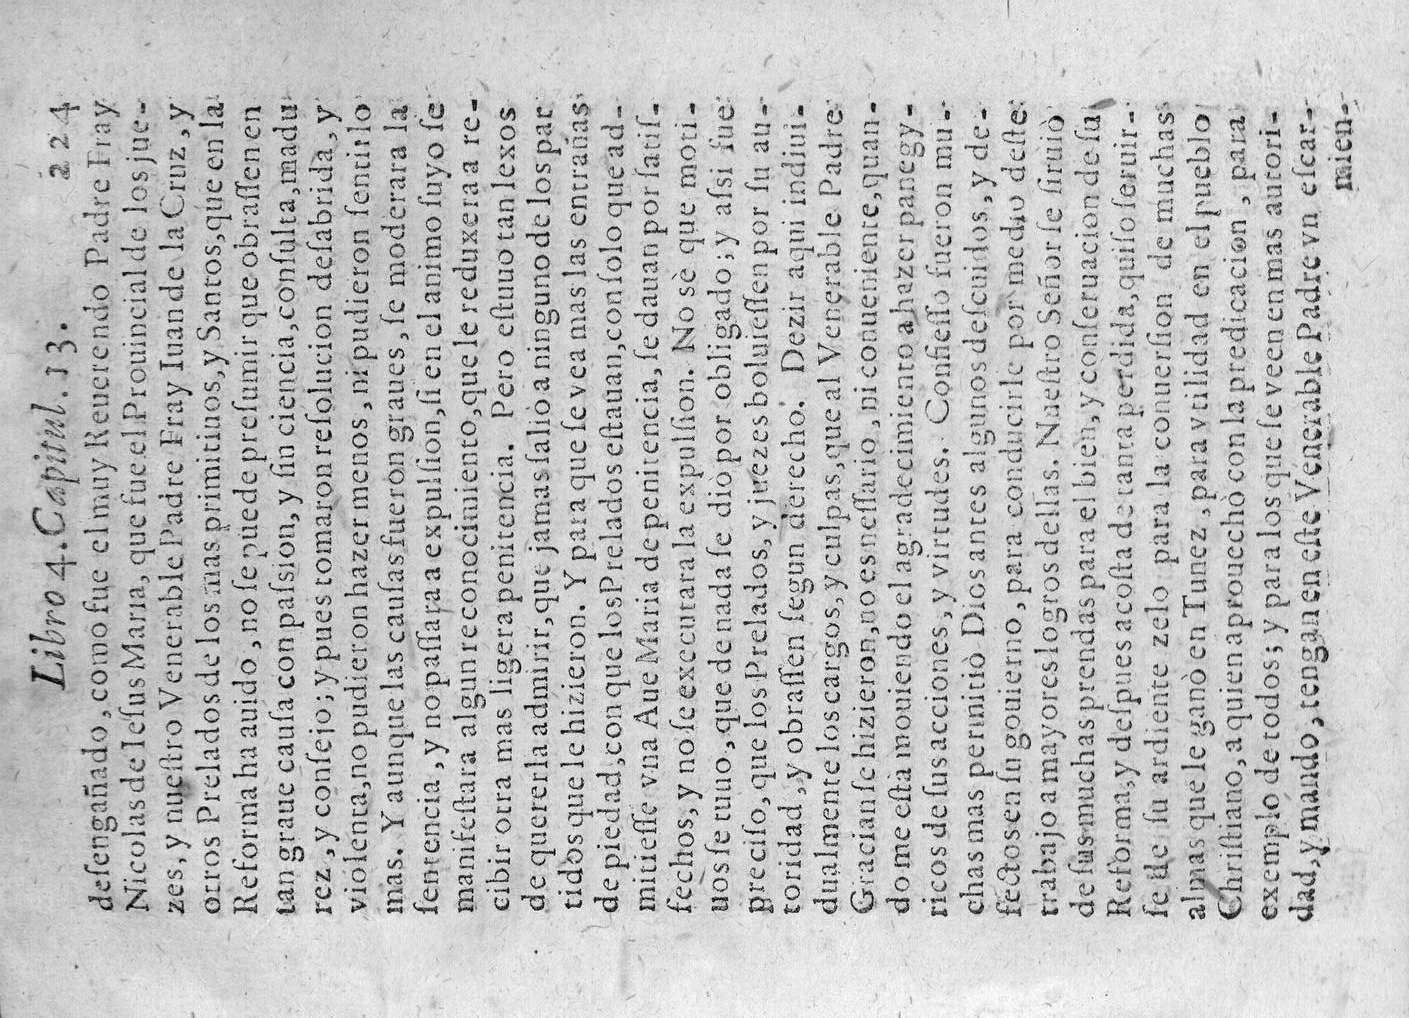 Libro 4. Capitul. 13. 224
deſengañado, como fue el muy Reuerendo Padre Fray
Nicolas de Ieſus Maria, que fue el Prouincial de los jue-
zes, y nueſtro Venerable Padre Fray Iuan de la Cruz, y
otros Prelados de los mas primitiuos, y Santos, que en la
Reforma ha auido, no ſe puede preſumir que obraſſen en
tan graue cauſa con paſsion, y ſin ciencia, conſulta, madu
rez, y conſejo; y pues tomaron reſolucion deſabrida, y
violenta, no pudieron hazer menos, ni pudieron ſentir lo
mas. Y aunque las cauſas fueron graues, ſe moderara la
ſentencia, y no paſſara a expulſion, ſi en el animo ſuyo ſe
manifeſtara algun reconocimiento, que le reduxera a re-
cibir otra mas ligera penitencia. Pero eſtuuo tan lexos
de quererla admitir, que jamas ſaliò a ninguno de los par
tidos que le hizieron. Y para que ſe vea mas las entrañas
de piedad, con que los Prelados eſtauan, con ſolo que ad-
mitieſſe vna Aue Maria de penitencia, ſe dauan por ſatiſ-
fechos, y no ſe executara la expulſion. No sè que moti-
uos ſe tuuo, que de nada ſe diò por obligado; y aſsi fue
preciſo, que los Prelados, y juezes boluieſſen por ſu au-
toridad, y obraſſen ſegun derecho. Dezir aqui indiui-
dualmente los cargos, y culpas, que al Venerable Padre
Gracian ſe hizieron, no es neſſario, ni conueniente, quan-
do me eſtà mouiendo el agradecimiento a hazer panegy-
ricos de ſus acciones, y virtudes. Confieſſo fueron mu-
chas mas permitiò Dios antes algunos deſcuidos, y de-
fectos en ſu gouierno, para conducirle por medio deſte
trabajo a mayores logros dellas. Nueſtro Señor ſe ſiruiò
de ſus muchas prendas para el bien, y conſeruacion de ſu
Reforma; y deſpues a coſta de tanta perdida, quiſo ſeruir-
ſe de ſu ardiente zelo para la conuerſion de muchas
almas que le ganò en Tunez, para vtilidad en el pueblo
Chriſtiano, a quien aprouechò con la predicacion, para
exemplo de todos; y para los que ſe veen en mas autori-
dad, y mando, tengan en eſte Venerable Padre vn eſcar-
mien-